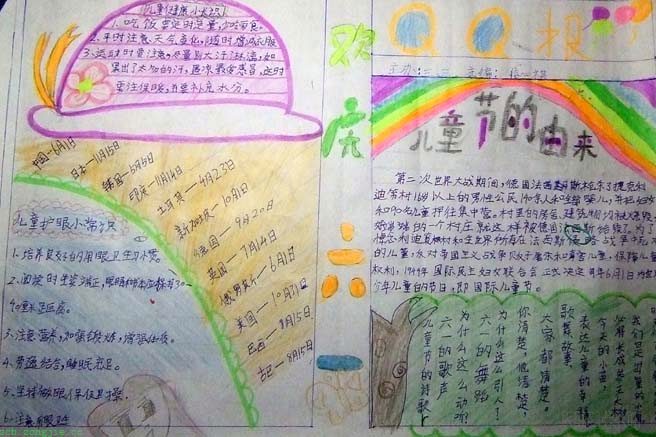 儿童健康小知识
1、吃饭要定时定量,不吃零食。
2、平时注意天气变化,随时增减衣服
3、运动时要注意,尽量别大汗淋漓,如
果出了太多的汗,
要注意保暖,并要补充水分。
中国—6月1
日本—11月15日
韩国—5月5日
印度—11月14日
土耳其—4月23日
新加坡—10月1日
德国—9月20日
英国—7月14日
俄罗斯—6月1日
美国—10月31日
巴西—8月15日
古巴—8月15日
儿童护眼小常识
1、培养良好的用眼卫生习惯。
2、阅读时坐姿端正,眼睛和书本应保持30
40厘米距离。
3、注意营养,加强锻炼,增强体质。
4、劳逸结合,睡眠充足。
5、坚持做眼保健操。
6、注意
欢度六一
QQ报
主办:三、二 主编:
儿童节的由来
第二次世界大战期间,德国法西斯
迪策村16岁以上的男性公民140余人和全部婴儿,并把妇女
和90名儿童押往集中营。村里的房舍、建筑物均被烧毁,
好端端的一个村庄就这样被德国法西斯给毁了。为了
悼念利迪策村和全世界所有在法西斯侵略战争中死
的儿童,反对帝国主义战争贩子屠杀和毒害儿童,保障儿童
权利,1949年国际民主妇女联合会正式决定每年6月1日为
少年儿童的节日,即国际儿童节。
我们是世界的
你将长成参天大树
今天的小苗
表达儿童的幸福
歌舞故事
大家都清楚
你清楚,他清楚,
为什么这么引人?
六一的舞蹈
为什么这么动听?
六一的歌声
儿童节的诗歌